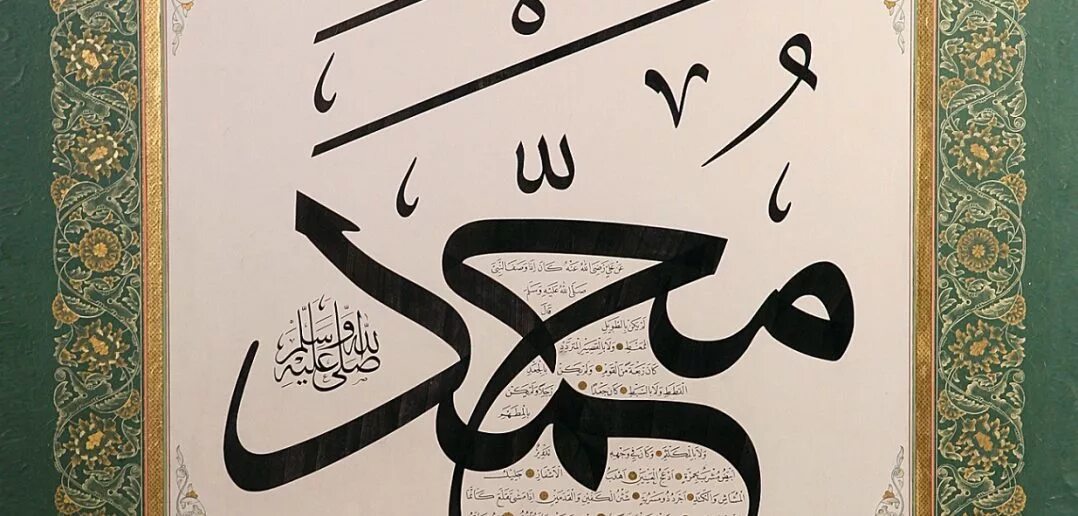 مُحَمَّد
صَلَّى اللهُ عَلَيْهِ وَسَلَّمَ
عَنْ عَلِيٍّ رَضِيَ اللهُ عَنْهُ كَانَ إِذَا وَصَفَ النَّبِيَّ
صَلَّى اللهُ عَلَيْهِ وَسَلَّمَ
قَالَ
لَمْ يَكُنْ بِالطَّوِيلِ
الْمُمَّغِطِ وَلَا بِالْقَصِيرِ الْمُتَرَدِّدِ
كَانَ رَبْعَةً مِنَ الْقَوْمِ وَلَمْ يَكُنْ بِالْجَعْدِ
الْقَطَطِ وَلَا بِالسَّبِطِ كَانَ جَعْدًا رَجِلًا وَلَمْ يَكُنْ
بِالْمُطَهَّمِ
وَلَا بِالْمُكَلْثَمِ وَكَانَ فِي وَجْهِهِ تَدْوِيرٌ
أَبْيَضُ مُشْرَبٌ بِحُمْرَةٍ أَدْعَجُ الْعَيْنَيْنِ أَهْدَبُ الْأَشْفَارِ جَلِيلُ
الْمُشَاشِ وَالْكَتَدِ أَجْرَدُ ذُو مَسْرُبَةٍ شَثْنُ الْكَفَّيْنِ وَالْقَدَمَيْنِ إِذَا مَشَى تَقَلَّعَ كَأَنَّمَا